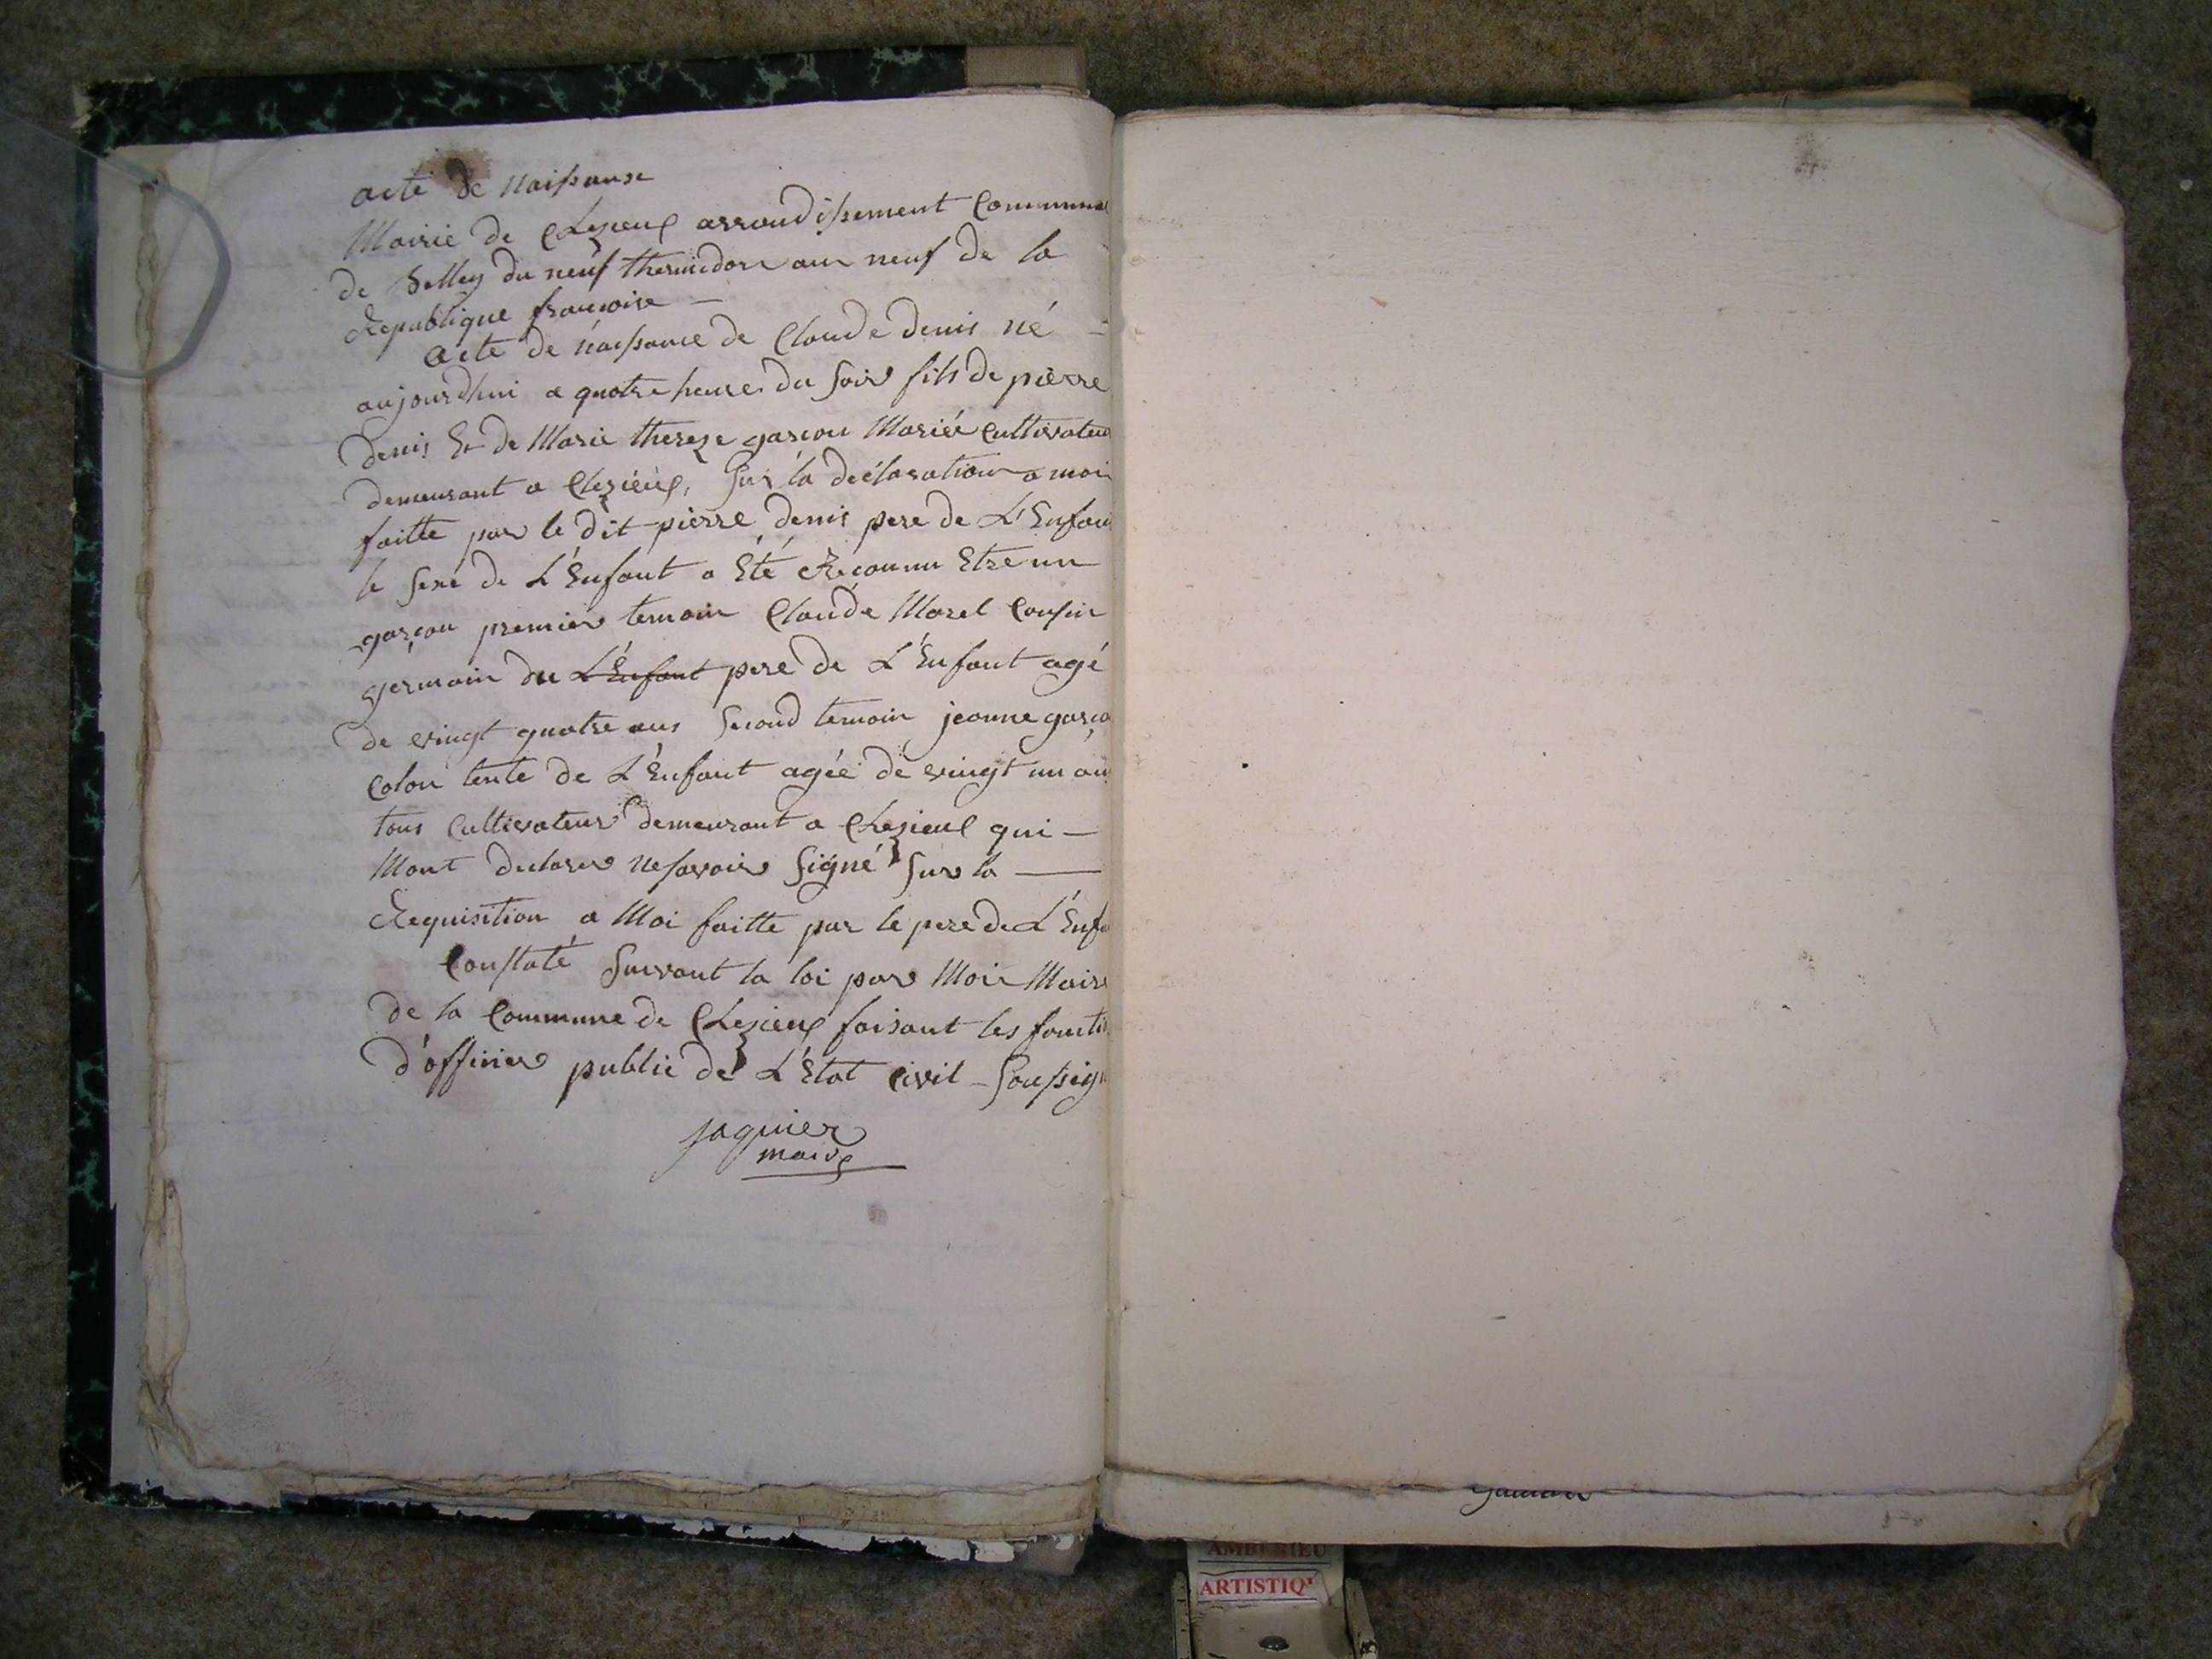 acte de naissanse
Mairie de Chezieux arrondissement Communal
de Belley du neuf thermidor an neuf de la
Republique francoise —
acte de naissance de Claude denis né —
aujourdhui a quatre heures du soir fils de pierre
denis Et de Marie thereze garçon Mariés cultivateu
demeurant a Chezieux, Sur la déclaration a moi
faitte par le dit pierre denis pere de L'Enfan
le sexe de L'Enfant a Eté Reconnu Etre un
garçon premier temoin Claude Morel Cousin
germain du L'Enfant pere de L'Enfant agé
de vingt quatre ans Second temoin jeanne garço
Colon tente de L'Enfant agée de vingt un an
tous Cultivateur demeurant a Chezieux qui —
Mont declarer ne savoir Signé Sur la —
Requisition a Moi faitte par le pere de L'Enfa
Constaté Suivant la loi par Moi Maire
de la Commune de Chezieux faisant les foncti
d'officier public de L'Etat Civil - Soussign
Jaquier
maire
AMBERIEU
ARTISTIQ